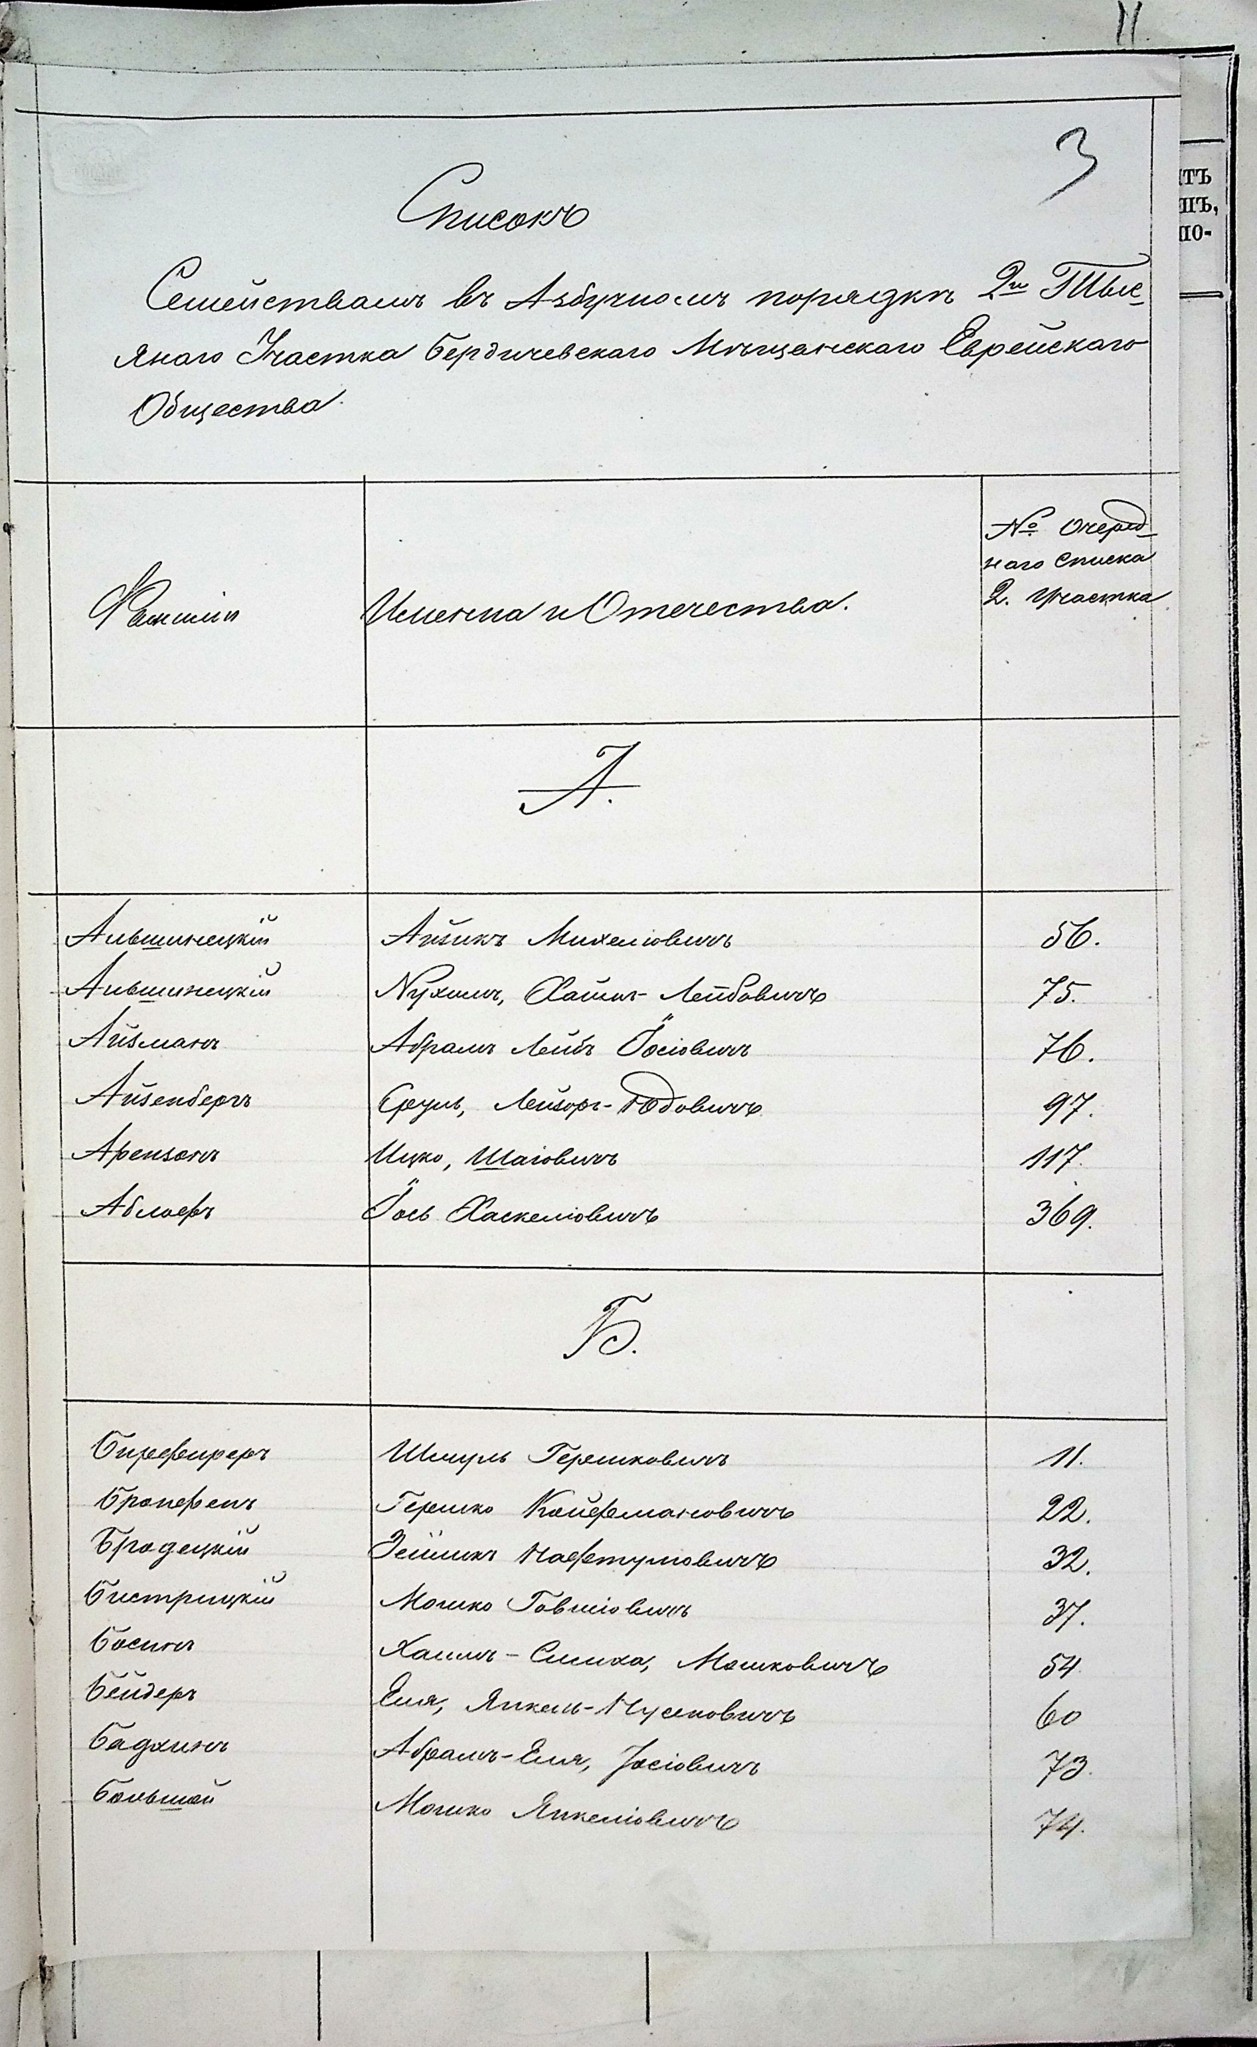 11.
3
Списокъ
Семействамъ въ Азбучномъ порядкѣ 2го Тыс-
янаго Участка Бердичевскаго Мѣщанскаго Еврейскаго
Общества.
Фамиліи
Имена и Отечества.
№ Очеред-
наго Списка
2. Участка
ТЪ
ШЪ,
ПО-
А.
Айзикъ Михеліовичъ 56.
Нухимъ, Хаимъ-Лейбовичъ 75.
Айзманъ Абрамъ Лейбъ Іосіовичъ 76.
Айзенбергъ Сруль, Лейзоръ-Юдовичъ 97.
Арензонъ Ицко, Шаіовичъ 117.
Іось Хаскеліовичъ 369.
Б.
Бирфиреръ Шмуль Гершковичъ 11.
Гершко Койфмановичъ 22.
Бродецкій Зейликъ Нафтуліовичъ 32.
Бистрицкій Мошко Говшіовичъ 37.
Босинъ Хаимъ-Симха, Мошковичъ 54
Бейдеръ Еля, Янкель-Нусеновичъ 60
Бадхинъ Абрамъ-Еля, Іосіовичъ 73.
Большой Мошко Янкеліовичъ 74.